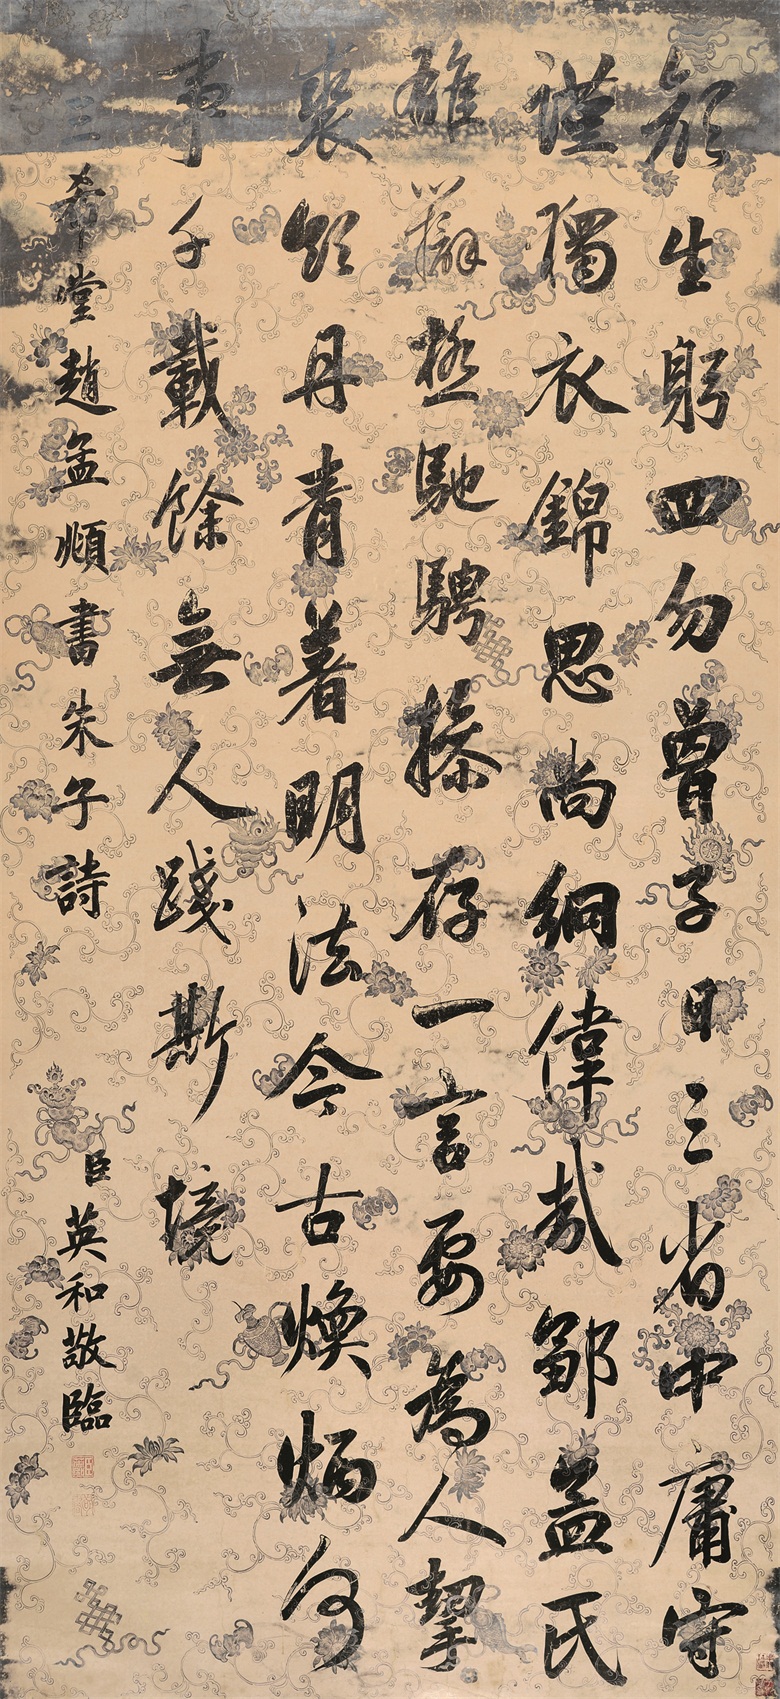 顏生躬四勿曾子日三省中庸守
謹獨衣錦思尚絅偉哉鄒孟氏
雄辯極馳騁操存一言要為人挈
裘領丹青著明法今古煥炳何
事千載餘無人踐斯境
三希堂趙孟頫書朱子詩
臣英和敬臨